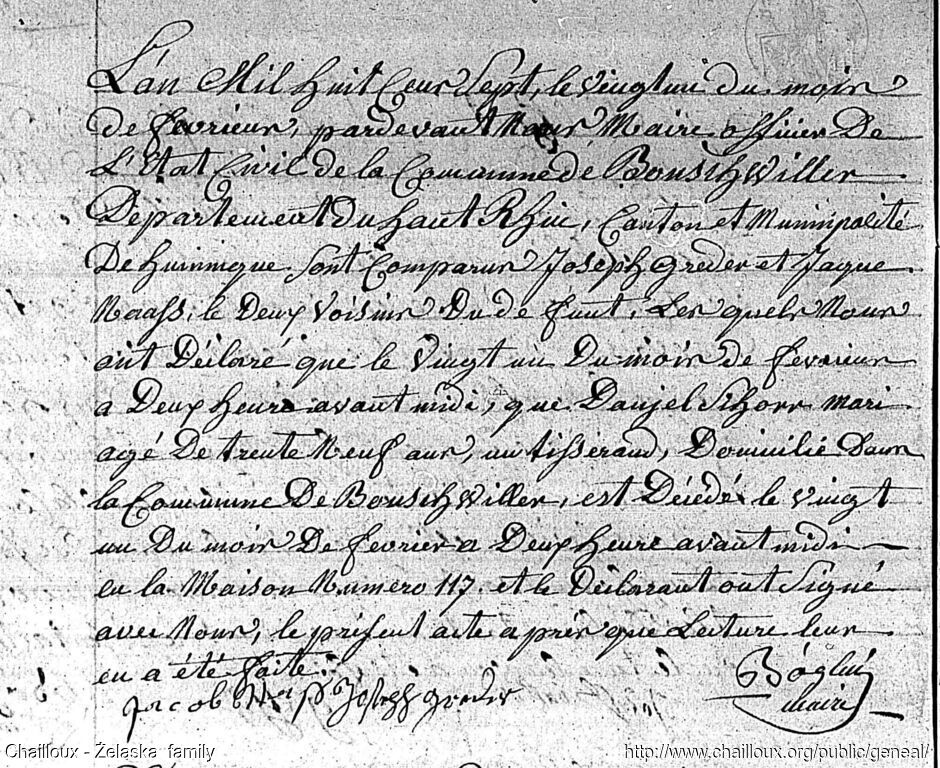 L'an Mil huit Cens Sept, le vingt un du mois
de fevrieur, pardevant Nous Maire officier De
L'Etat Civil de la Commune de Bouschwiller
Departement du haut Rhin, Canton et Municipalité
De huninque. sont Comparus Joseph Greder et Jaque
Naass, le Deux voisins Du de funt, Les quels Nous
ont Déclaré que le vingt un Du mois de fevrieur
a Deux heure avant midi, que Danjel Schorr mari
agé De trente Neuf ans, un tisserand, Domicilié Dans
la Commune De Bouschwiller, est Décédé le vingt
un Du mois De fevrier a Deux heure avant midi
en la Maison Numero 117. et le Déclarant ont Signé
avec Nous, le présent acte après que Lecture leur
en a été faite.
Jacob Joseph greder
Böglin
maire
Chailloux - Żelaska family
http://www.chailloux.org/public/geneal/